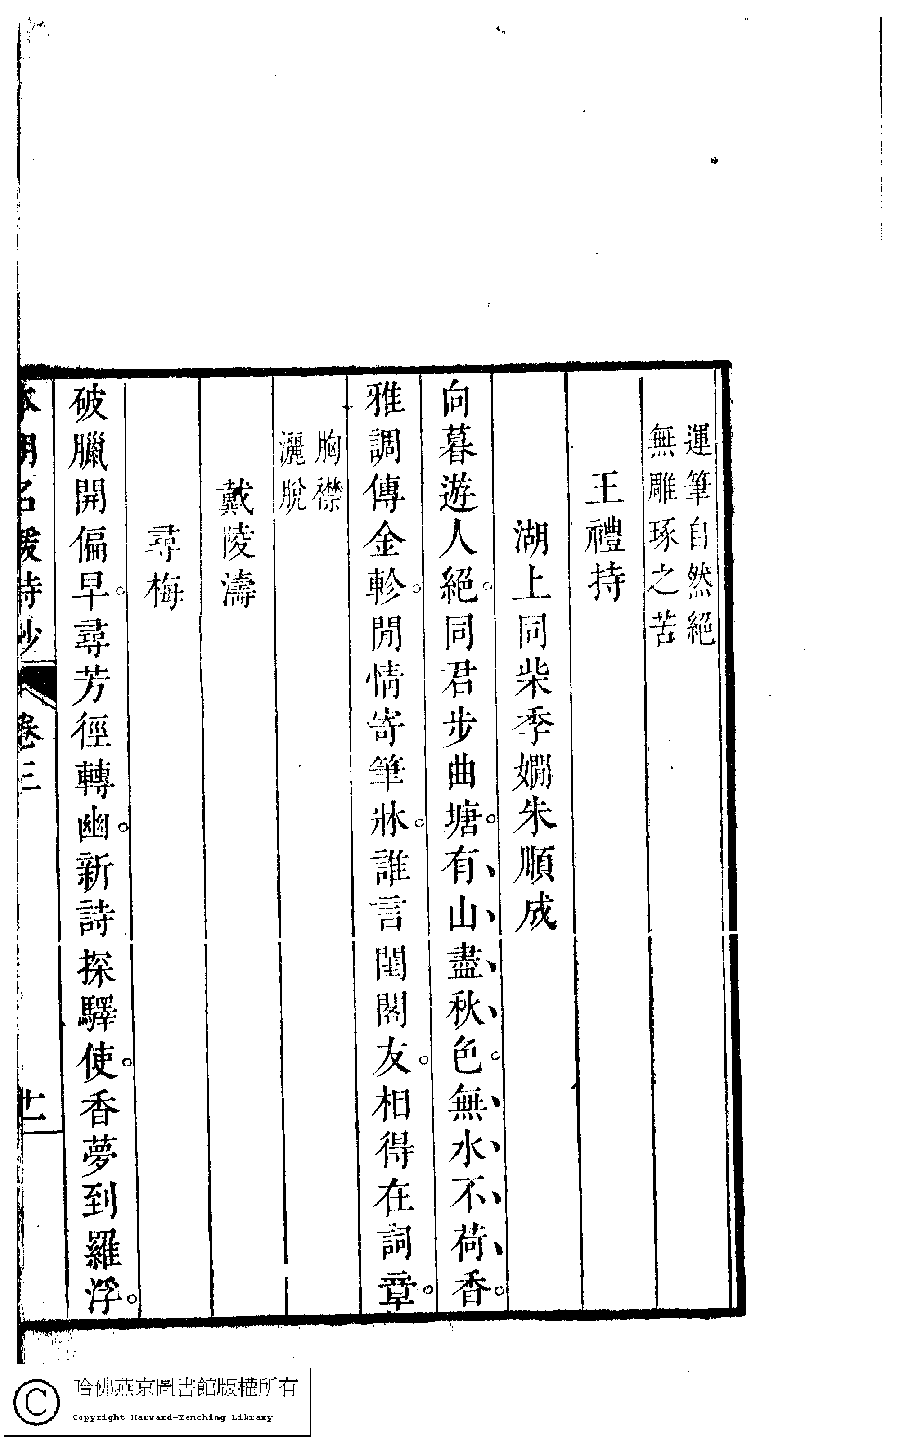 運筆自然絕
無雕琢之苦
王禮持
湖上同柴季嫺朱順成
向暮遊人絕。同君步曲塘。有山盡秋色。無水不荷香。
雅調傳金軫。閒情寄筆牀。誰言閨閣友。相得在詞章。
胸襟
灑脫
戴陵濤
尋梅
破臘開偏早。尋芳徑轉幽。新詩探驛使。香夢到羅浮。
本朝名媛詩鈔 卷三 廿一
哈佛燕京圖書館版權所有
Copyright Harvard-Yenching Library